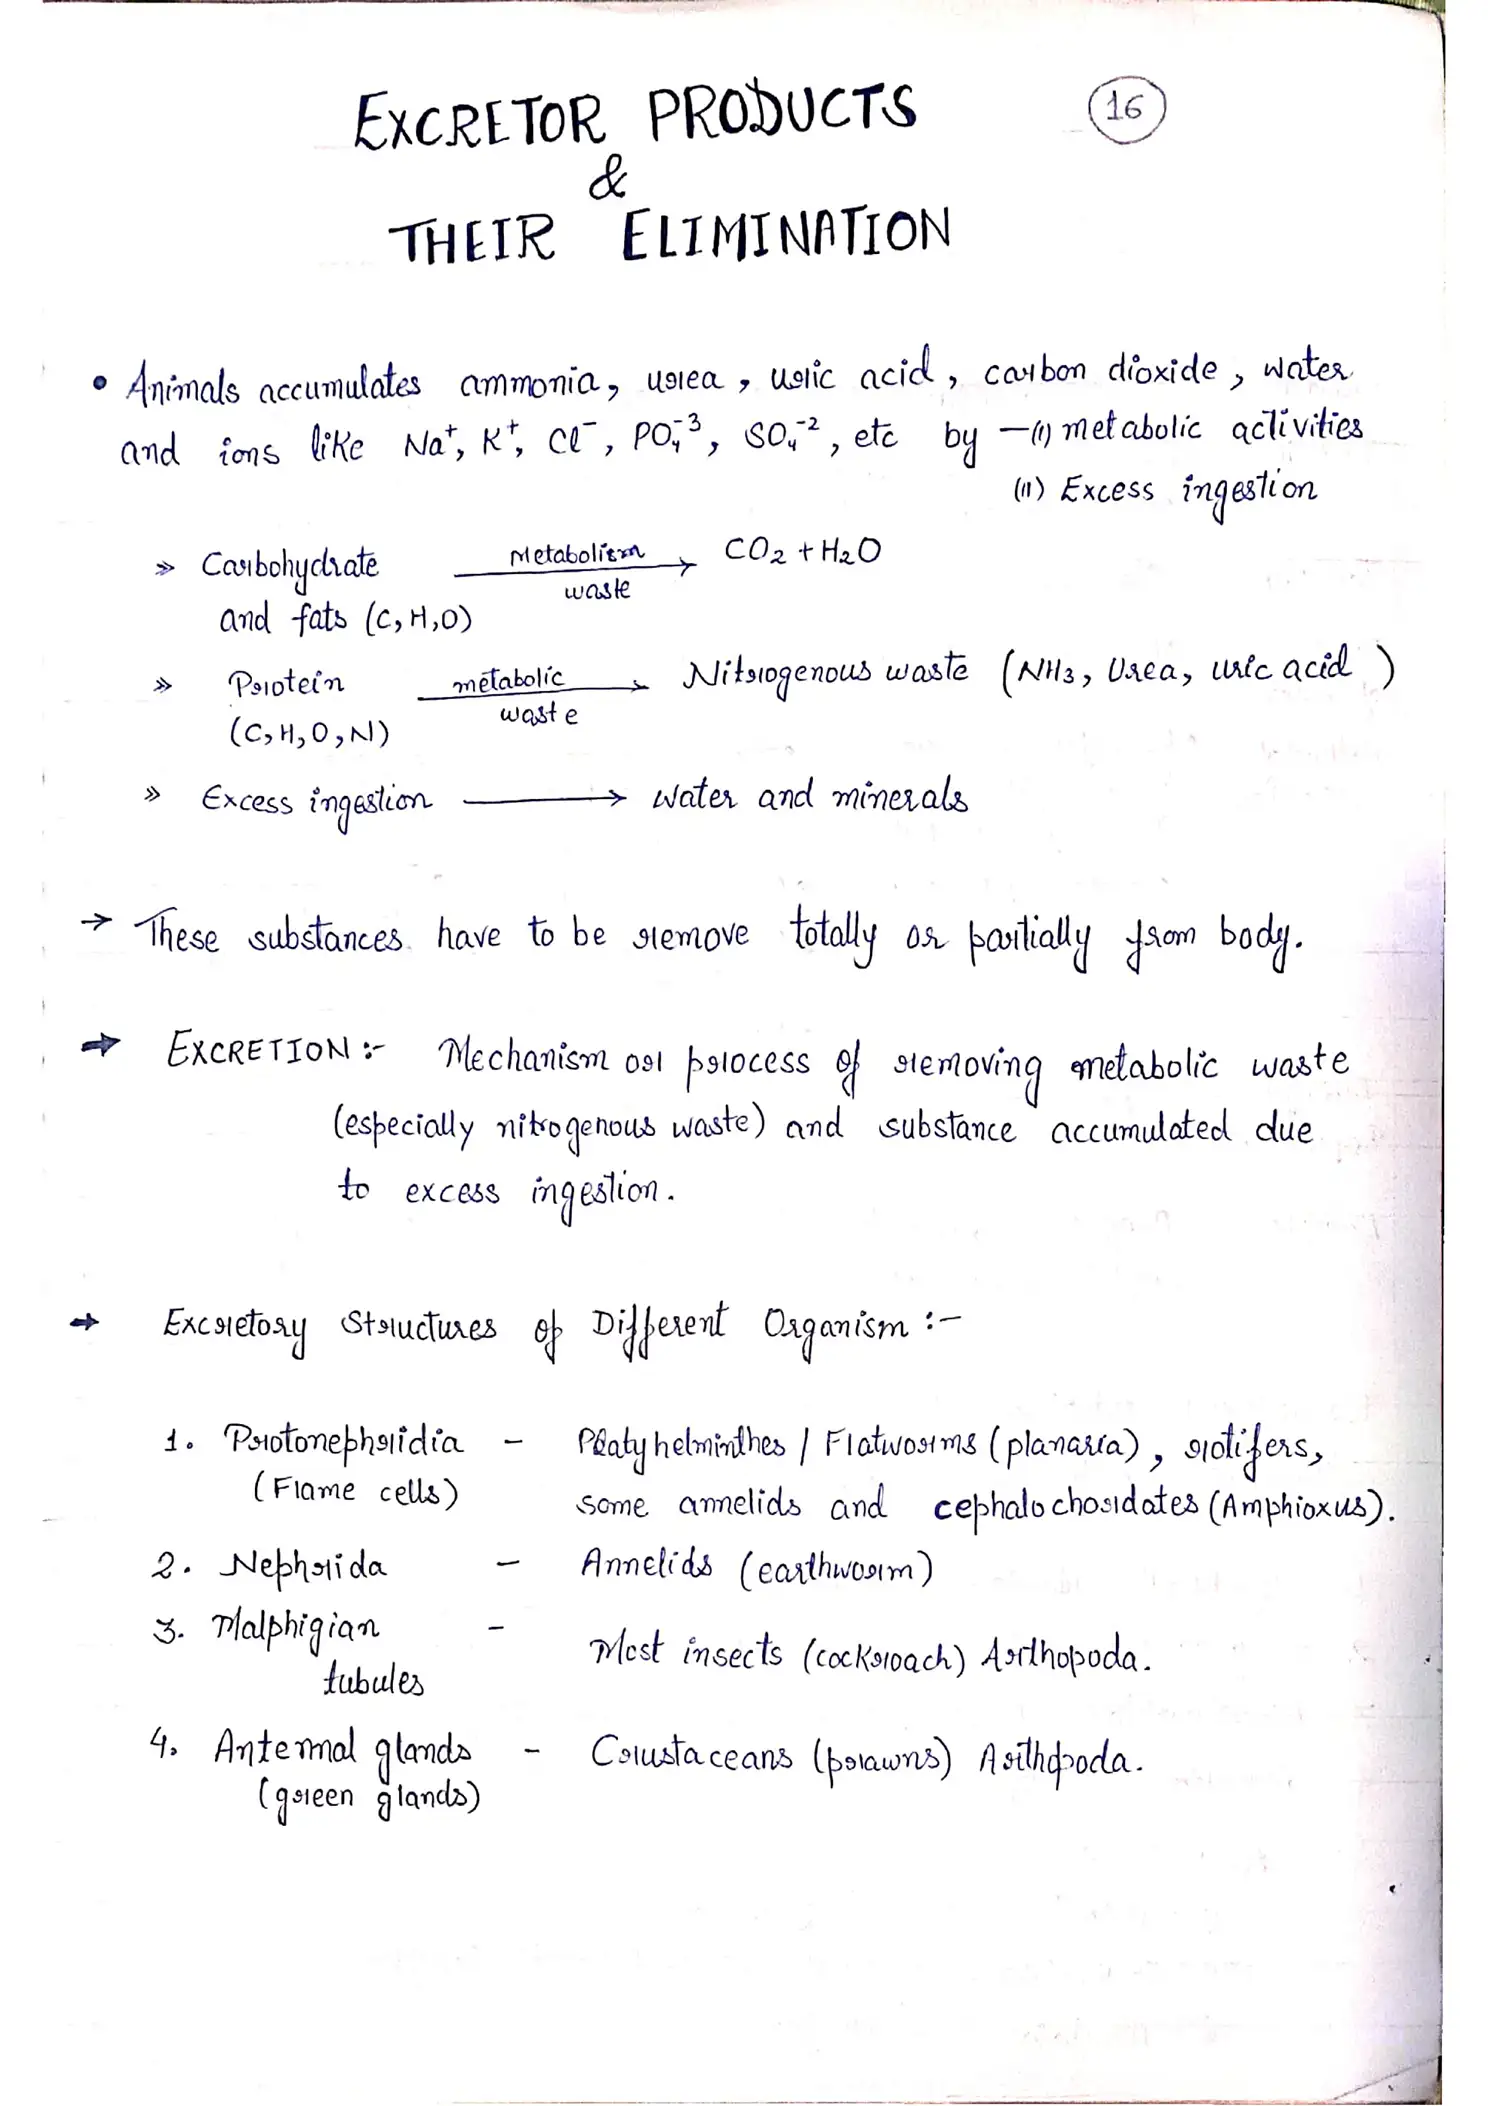 EXCRETOR PRODUCTS
16
&
THEIR ELIMINATION
• Animals accumulates ammonia, urea, uric acid, carbon dioxide, water
and ions like Na⁺, K⁺, Cl⁻, PO₄⁻³, SO₄⁻², etc by —(i) metabolic activities
(ii) Excess ingestion
» Carbohydrate and fats (C, H, O) —Metabolism waste→ CO₂ + H₂O
» Protein (C, H, O, N) —metabolic waste→ Nitrogenous waste (NH₃, Urea, uric acid)
» Excess ingestion ⟶ Water and minerals
→ These substances have to be remove totally or partially from body.
→ EXCRETION :- Mechanism or process of removing metabolic waste
(especially nitrogenous waste) and substance accumulated due
to excess ingestion.
→ Excretory Structures of Different Organism :-
1. Protonephridia - Platyhelminthes / Flatworms (planaria), rotifers,
(Flame cells) some annelids and cephalochordates (Amphioxus).
2. Nephrida - Annelids (earthworm)
3. Malphigian tubules - Most insects (cockroach) Arthopoda.
4. Antennal glands - Crustaceans (prawns) Arthopoda.
(green glands)